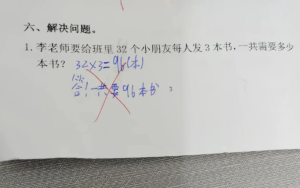 六、解决问题。
1. 李老师要给班里32个小朋友每人发3本书，一共需要多少
本书？ 32×3=96(本)
答：一共要96本书